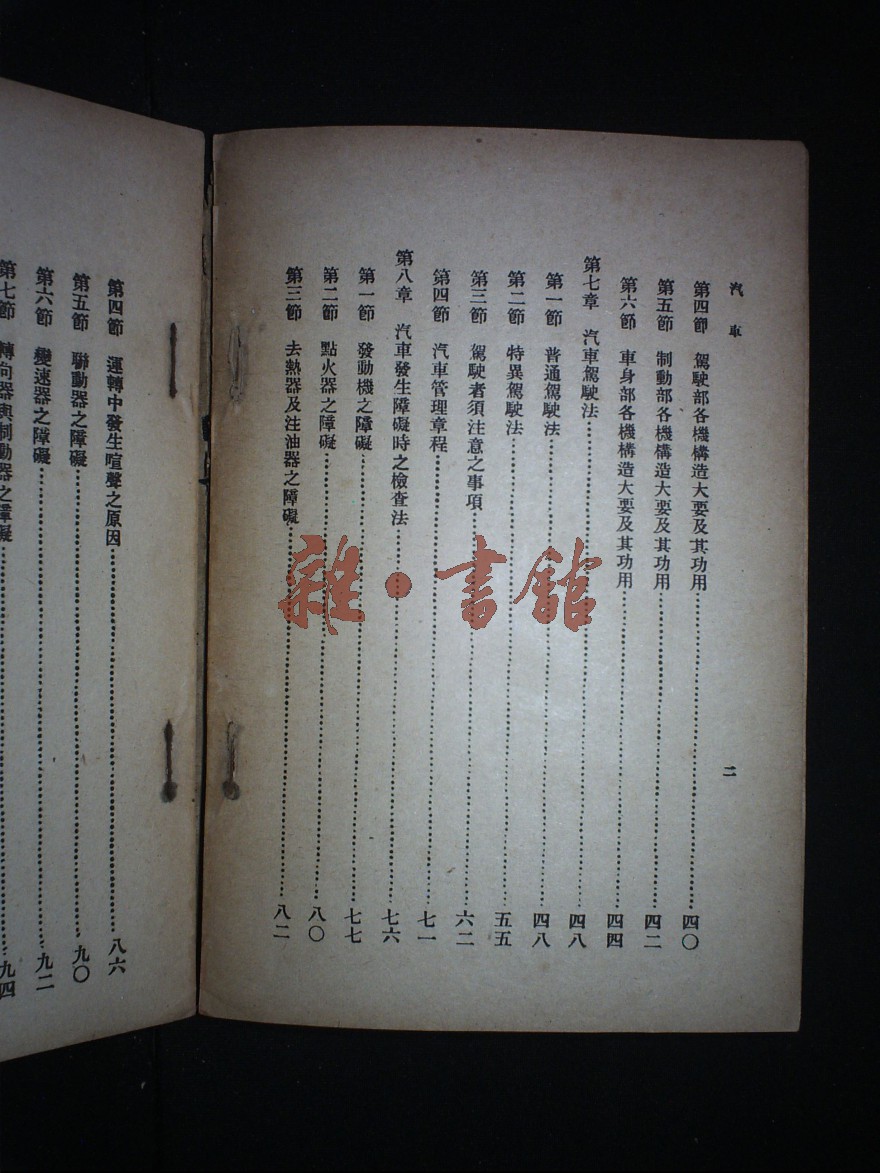 汽車
二
第四節 駕駛部各機構造大要及其功用……四〇
第五節 制動部各機構造大要及其功用……四二
第六節 車身部各機構造大要及其功用……四四
第七章 汽車駕駛法……四八
第一節 普通駕駛法……四八
第二節 特異駕駛法……五五
第三節 駕駛者須注意之事項……六二
第四節 汽車管理章程……七一
第八章 汽車發生障礙時之檢查法……七六
第一節 發動機之障礙……七七
第二節 點火器之障礙……八〇
第三節 去熱器及注油器之障礙……八二
第四節 運轉中發生喧聲之原因……八六
第五節 聯動器之障礙……九〇
第六節 變速器之障礙……九二
第七節 轉向器與制動器之障礙……九四
雜·書館